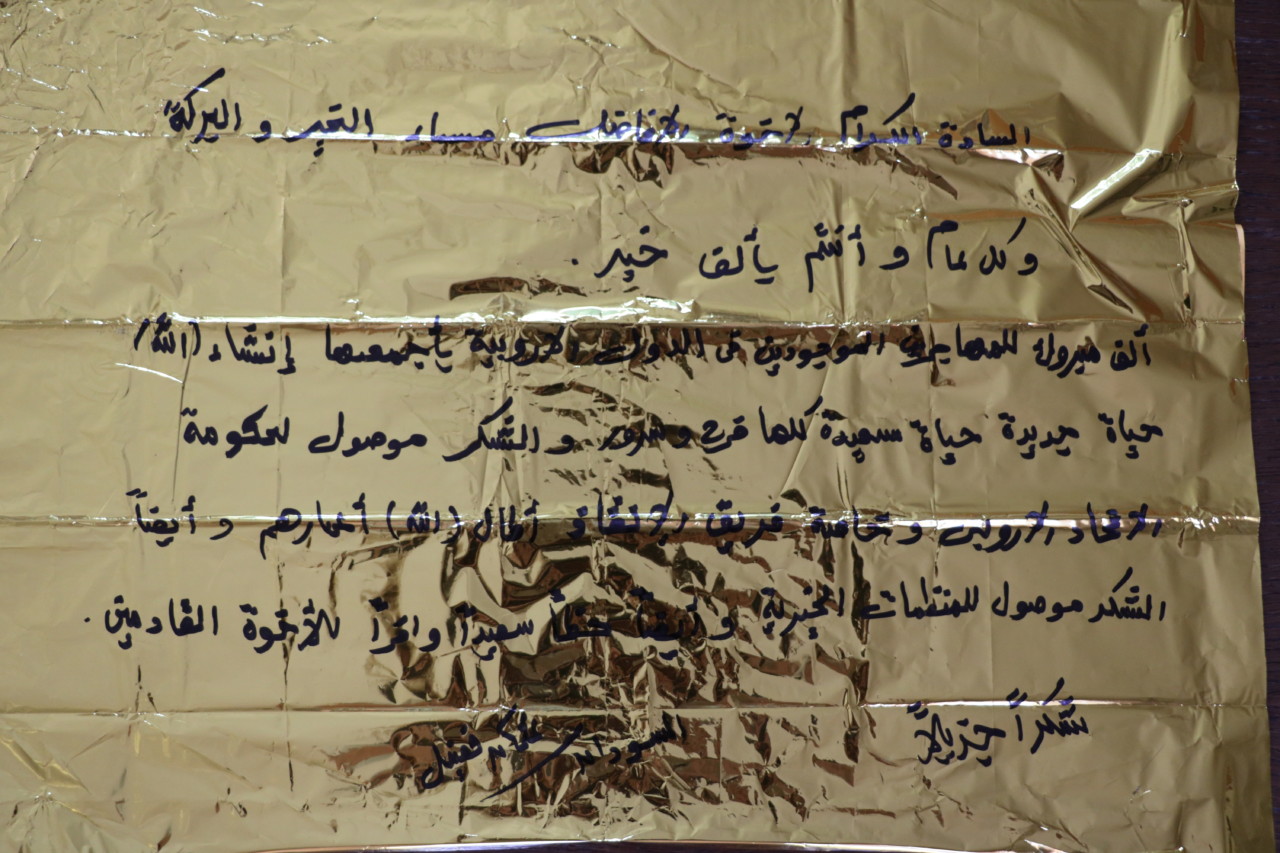 السادة الكرام الاخوة الافاضل مساء الخير و البركة
و كل عام و أنتم بألف خير .
ألف مبروك للمهاجرين الموجودين فى الدول الاروبية بأجمعها إنشاء (الله)
حياة جديدة حياة سعيدة كلها فرح و سرور و الشكر موصول لحكومة
الاتحاد الاروبى و خاصة فريق الانقاذ أطال (الله) أعمارهم و أيضاً
الشكر موصول للمنظمات الخيرية و أيضاً حظاً سعيداً وافراً للأخوة القادمين .
شكراً جزيلاً السودانى